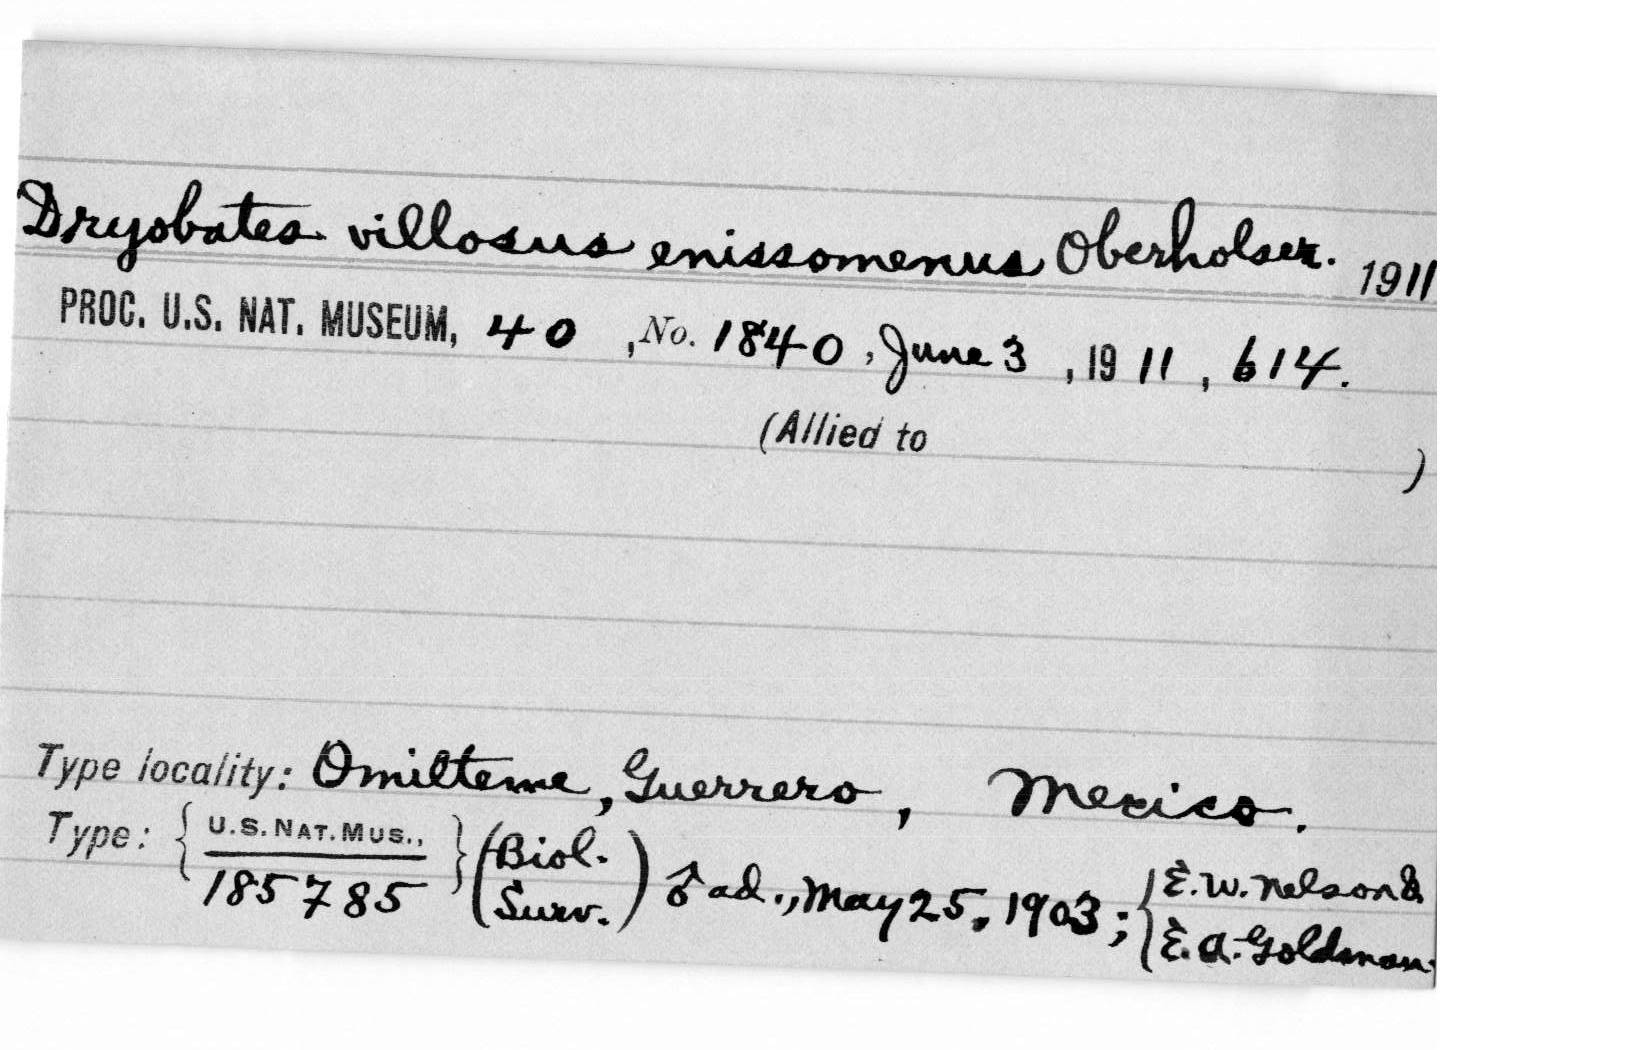 Dryobates villosus enissomenus Oberholser. 1911
PROC. U.S. NAT. MUSEUM, 40 , No. 1840, June 3 , 19 11 , 614.
(Allied to )
Type locality: Omilteme, Guerrero, Mexico.
Type: { U.S. NAT. MUS., 185785 } (Biol. Surv.) ♂ ad., May 25, 1903; { E. W. Nelson & E. A. Goldman.